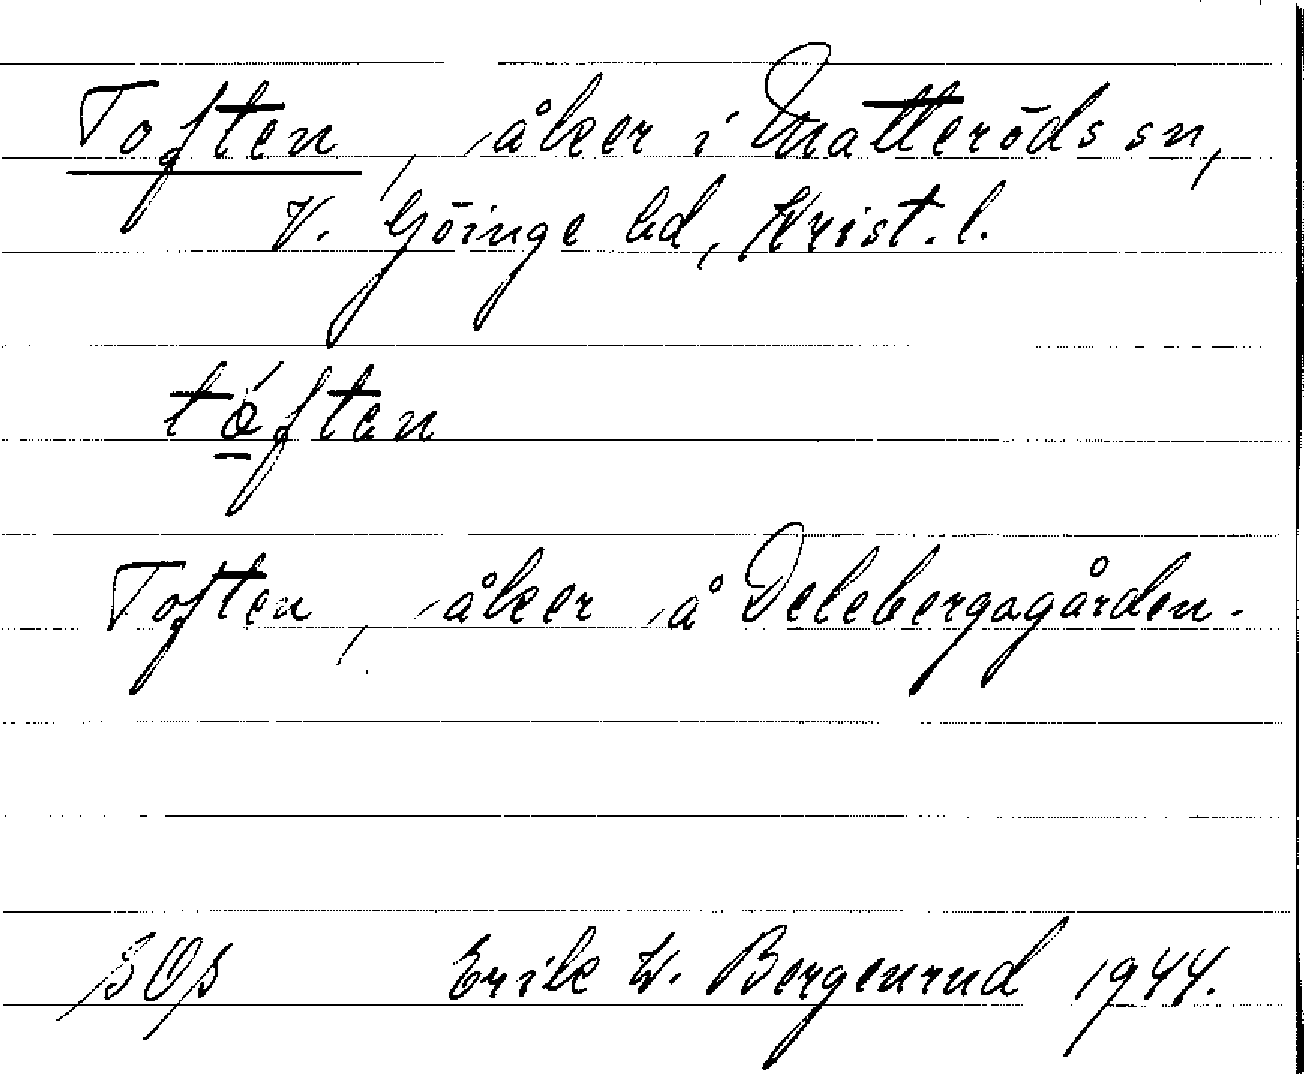 Toften, åker i Matteröds sn,
V. Göinge hd, Krist. l.
tó̱ften
Toften, åker å Delebergagården.
Erik W. Bergenrud 1944.